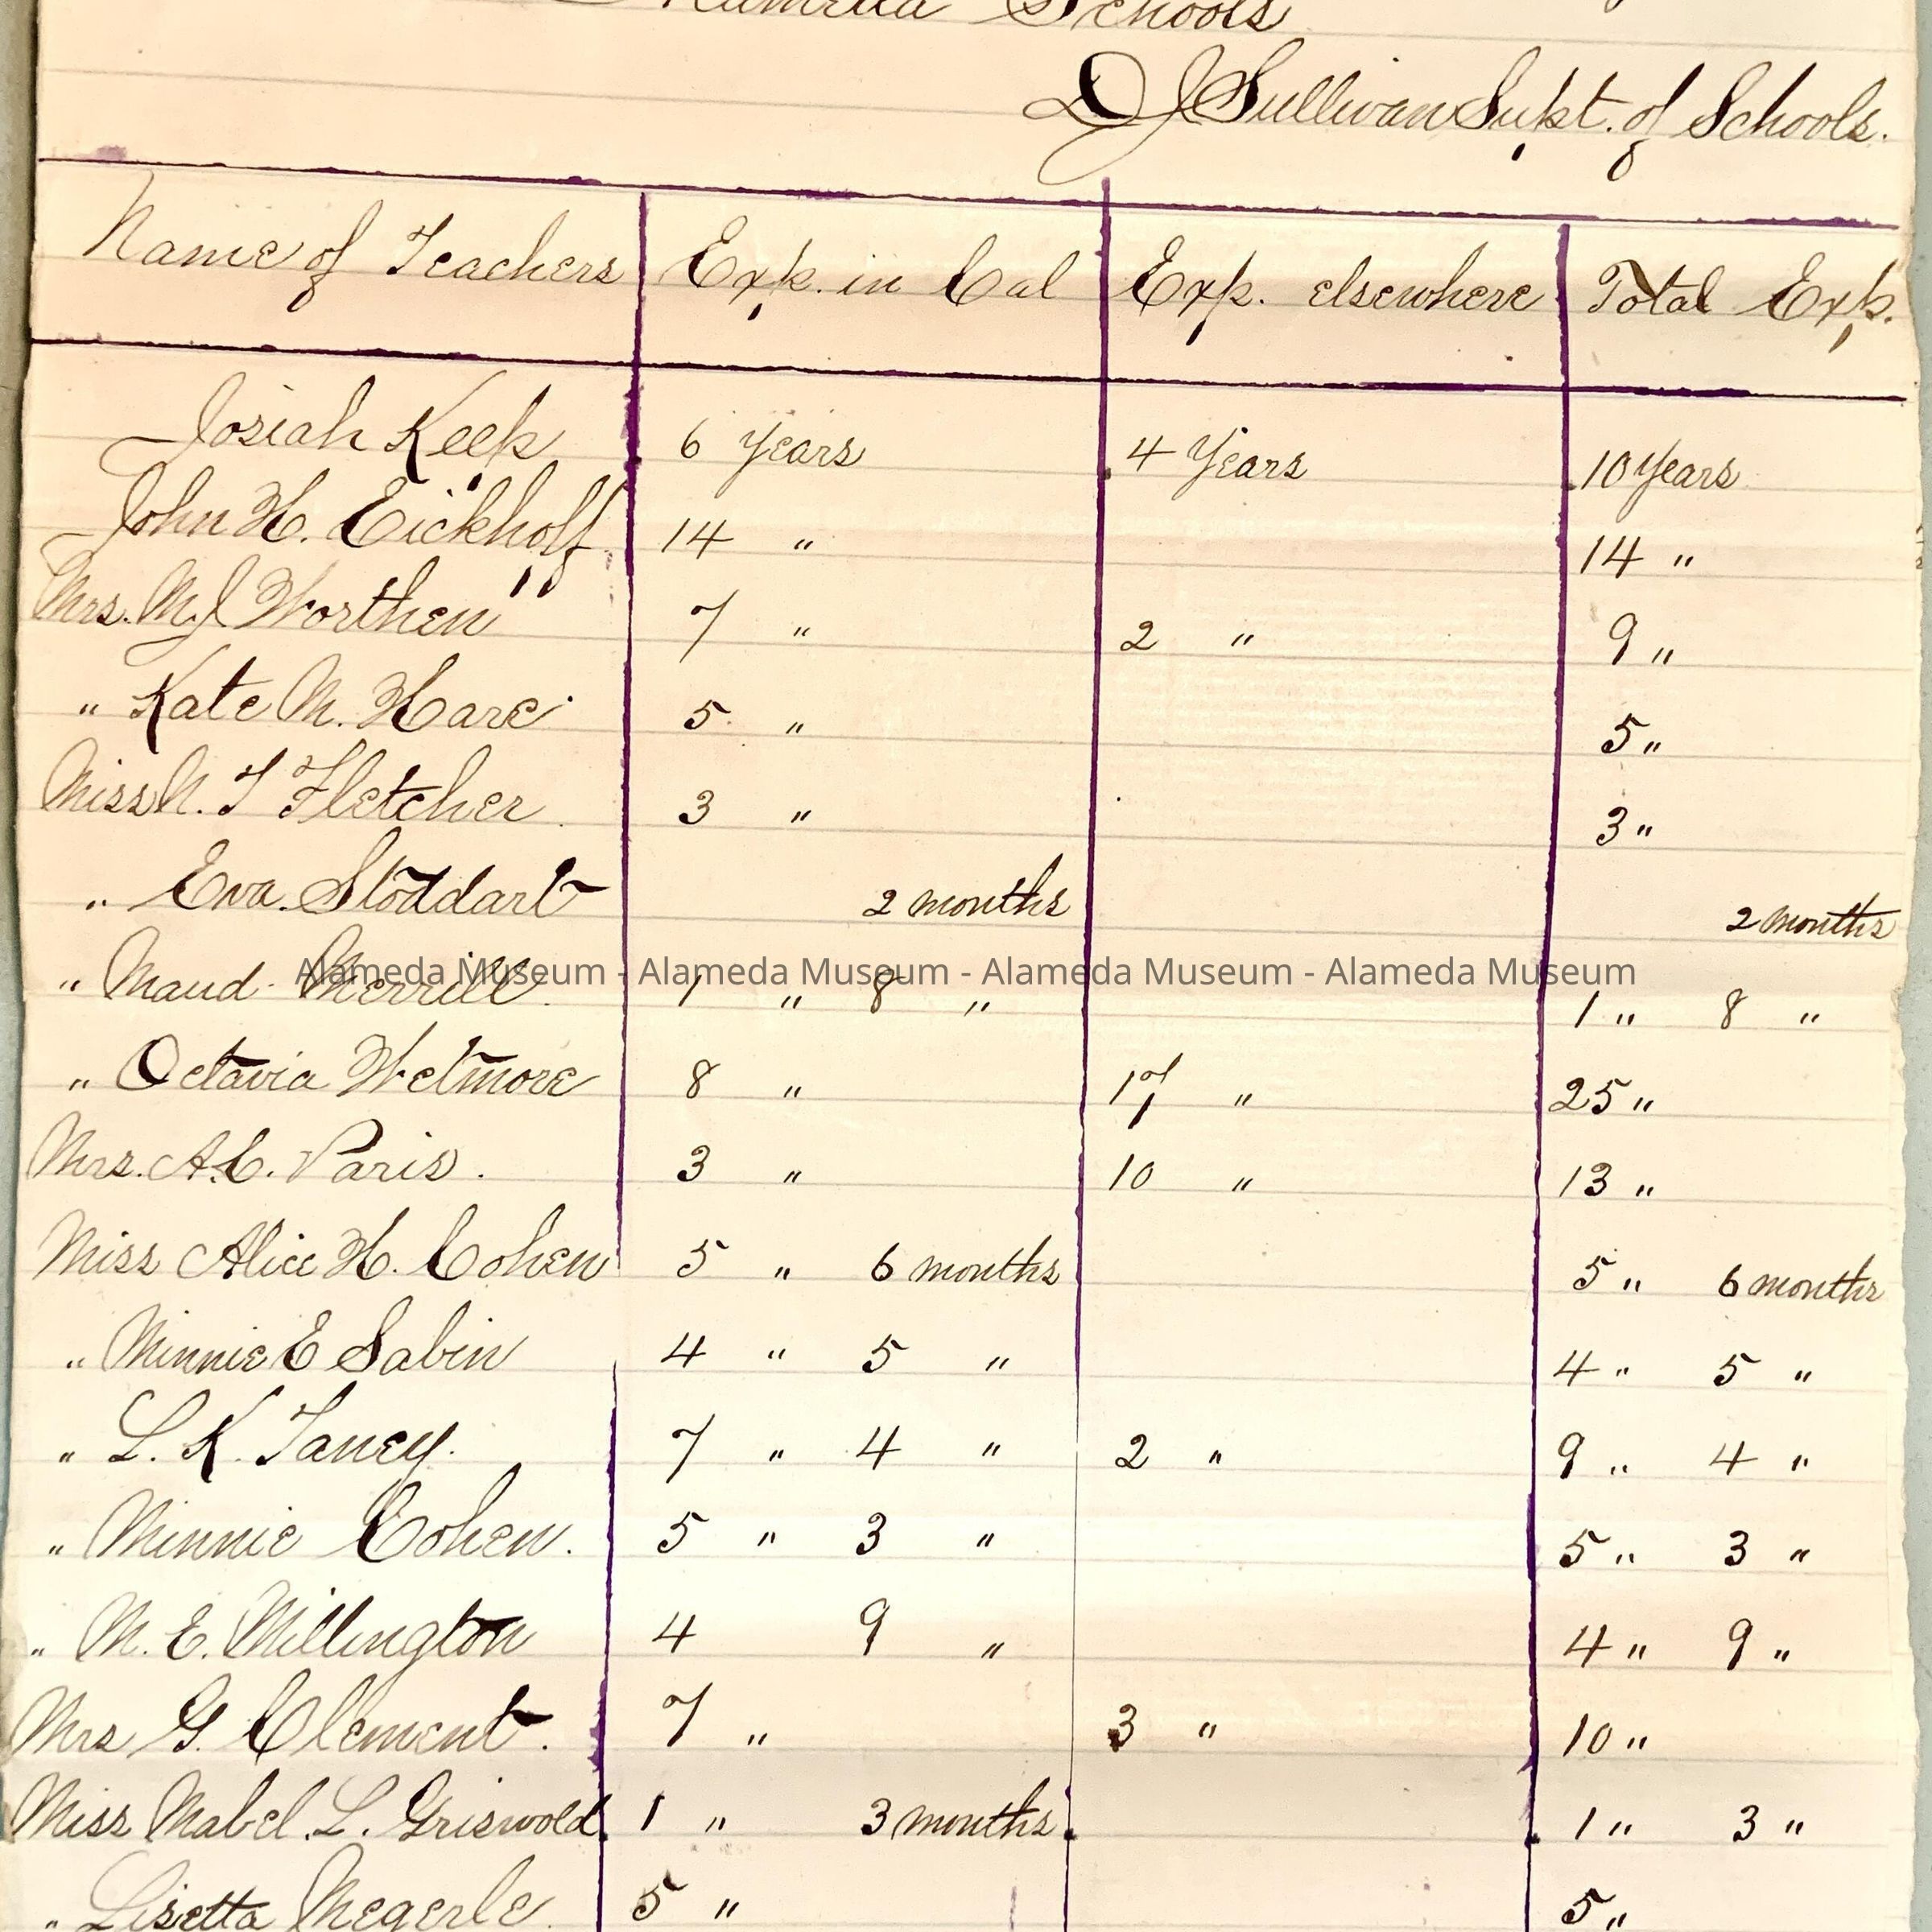 Alameda Schools
D J Sullivan Supt. of Schools.
Name of Teachers Exp. in Cal Exp. elsewhere Total Exp.
Josiah Keep 6 Years 4 Years 10 Years
John H. Eickhoff 14 " 14 "
Mrs. M. J Worthen 7 " 2 " 9 "
" Kate M. Hare 5 " 5 "
Miss N. T Fletcher 3 " 3 "
" Eva Stoddart 2 months 2 months
" Maud Merrill 1 " 8 " 1 " 8 "
Alameda Museum - Alameda Museum - Alameda Museum - Alameda Museum
" Octavia Wetmore 8 " 17 " 25 "
Mrs. A. C. Paris. 3 " 10 " 13 "
Miss Alice H. Cohen 5 " 6 months 5 " 6 months
" Minnie E Sabin 4 " 5 " 4 " 5 "
" L. K. Taney. 7 " 4 " 2 " 9 " 4 "
" Minnie Cohen. 5 " 3 " 5 " 3 "
" M. E. Millington 4 9 " 4 " 9 "
Mrs G. Clement. 7 " 3 " 10 "
Miss Mabel. L. Griswold 1 " 3 months 1 " 3 "
" Lisetta Megerle 5 " 5 "